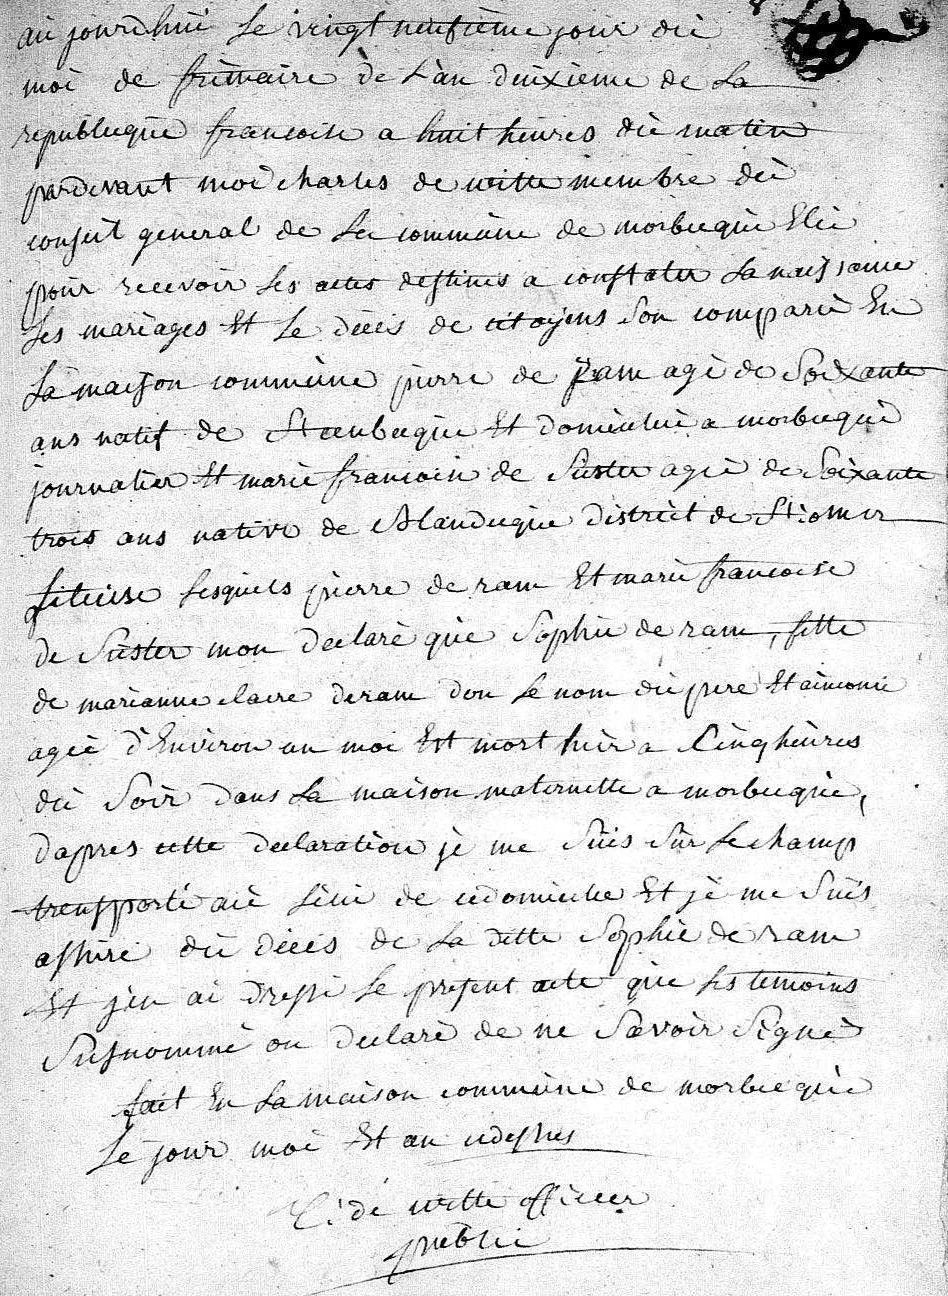 au jourdhui le vingt neufieme jour du
moi de frimaire de l'an deuxieme de la
republeque francoise a huit heures du matin
pardevant moi charles de witte membre du
conseil general de la commune de morbecque Elu
pour recevoir les actes destines a constater la naissance
les mariages Et le décès de citoyens son comparu En
la maison commune pierre de ram agé de Soixante
ans natif de Steenbecque Et domicilié a morbecque
journalier Et marie francoise de Suster agée de Soixante
trois ans native de Blandecque district de St: omer
lesquels pierre de ram Et marie francoise
de Suster mon declaré que Sophie de ram, fille
de marianne claire deram don le nom du pere Et
agée d'Environ un moi Est mort hier a Cinq heures
du Soir dans la maison maternelle a morbecque,
dapres cette declaration je me Suis Sur le champ
transporté au lieu de cedomicile Et je me Suis
assuré du décès de la ditte Sophie de ram
Et j'en ai dressé le present acte que les temoins
Susnommé on declaré de ne Savoir Signé
fait En la maison commune de morbecque
le jour moi Et an cidessus
C: de witte officier
public